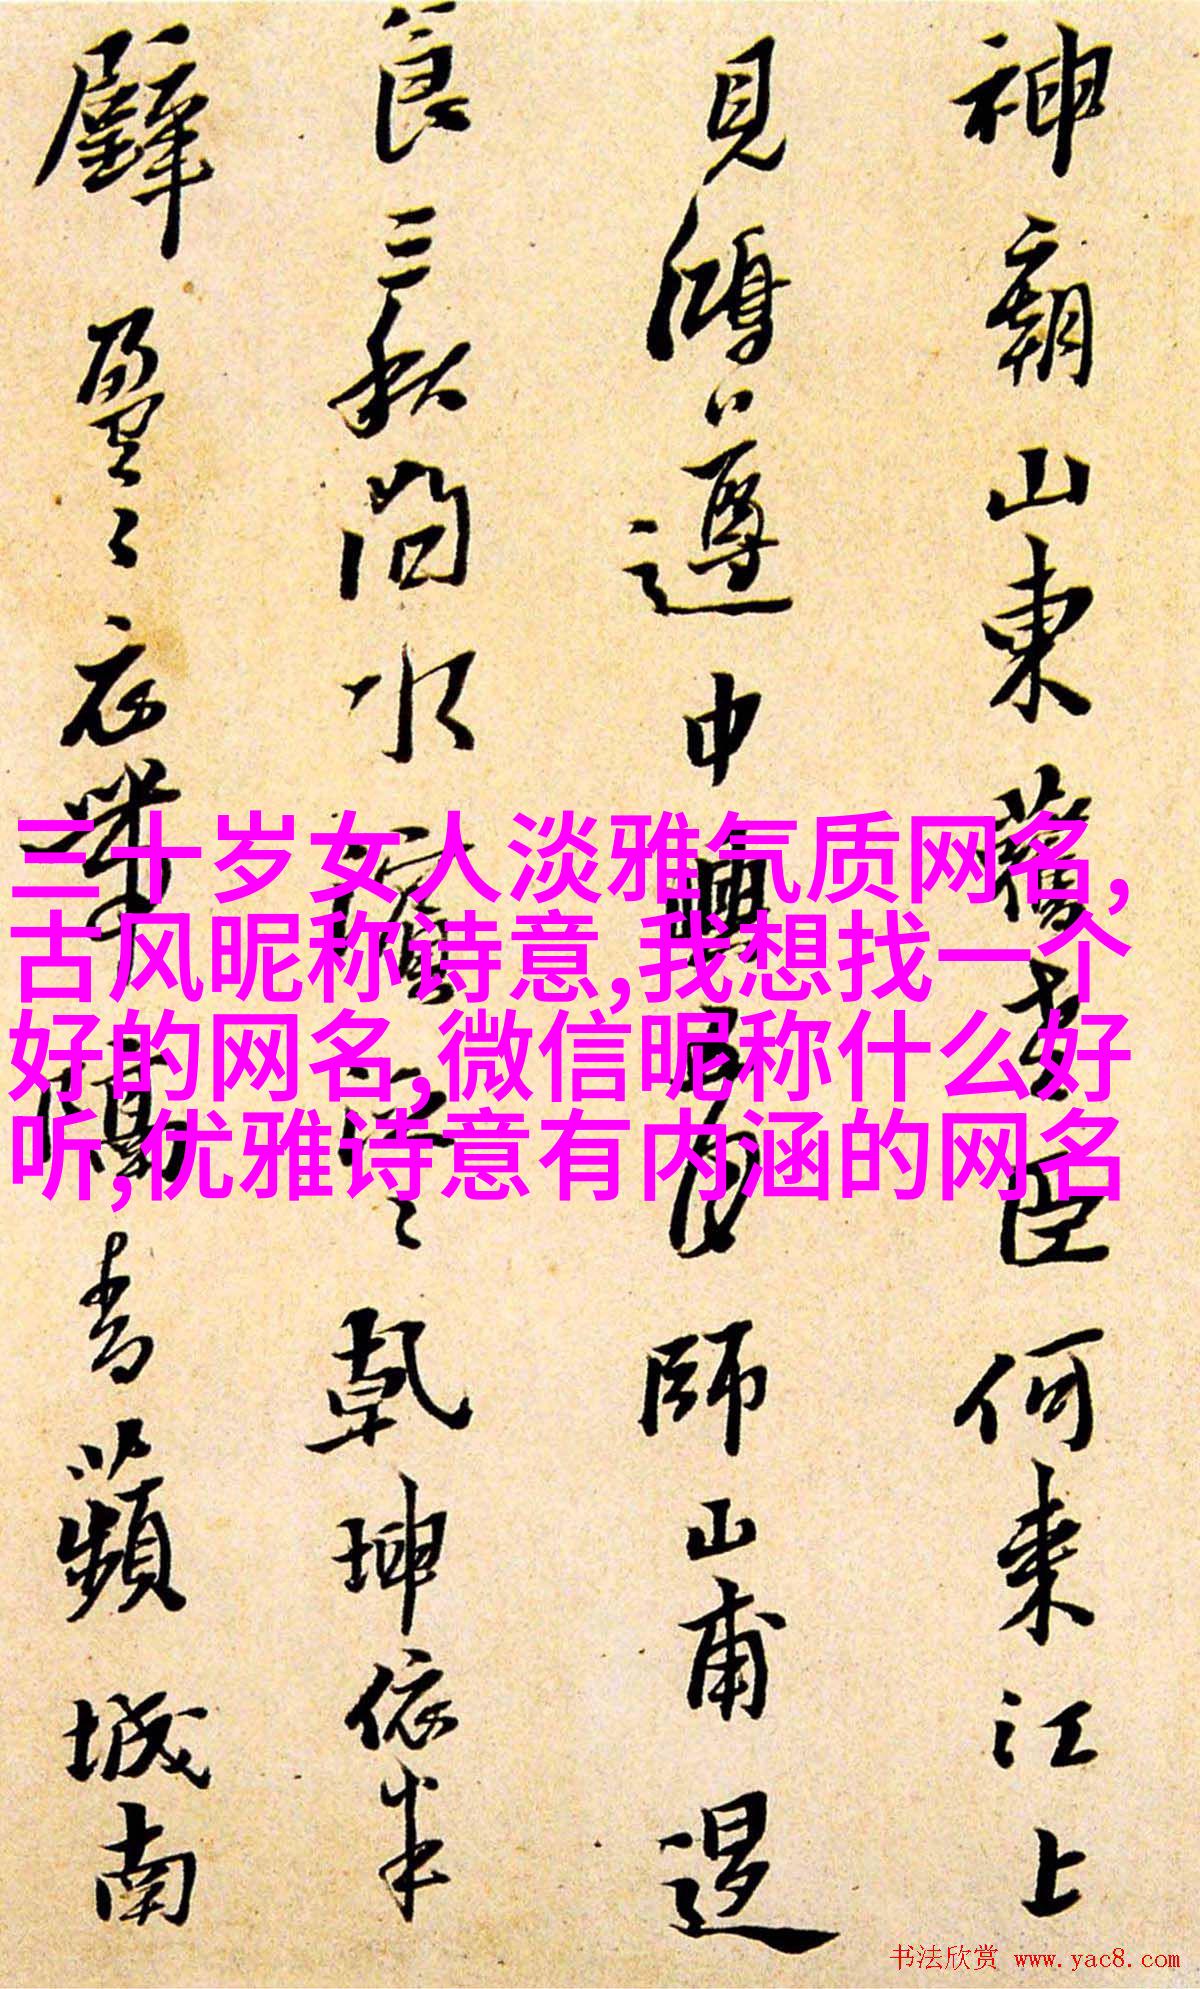 神廟山東舊老臣何来江上
見鴻遵中興師山甫
三秋问水乾坤依半
盈々衣帶隔青蘋城南
三十岁女人淡雅气质网名,
古风昵称诗意,我想找一个
好的网名,微信昵称什么好
听,优雅诗意有内涵的网名
书法欣赏 www.yac8.com